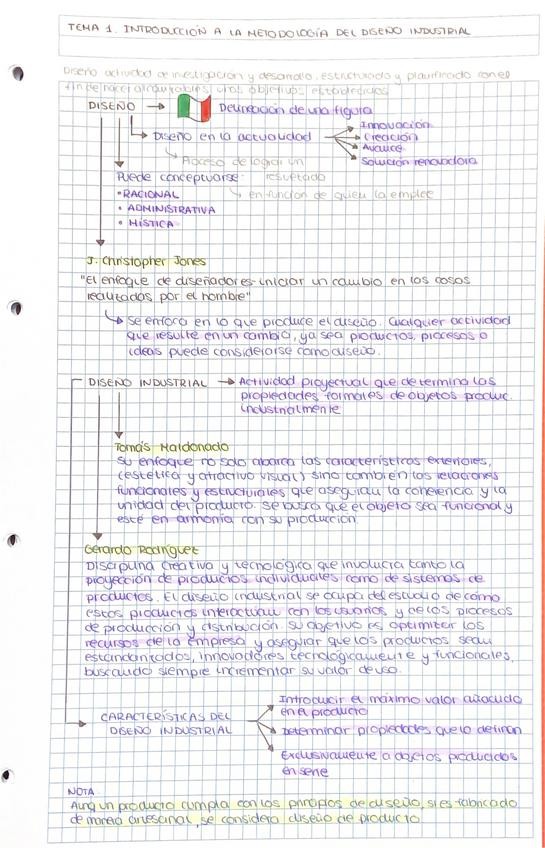 TEMA 1. INTRODUCCIÓN A LA METODOLOGÍA DEL DISEÑO INDUSTRIAL
Diseño actividad de investigación y desarrollo, estructurado y planificado con el
fin de hacer alcanzables unos objetivos establecidos
DISEÑO → Delineación de una figura
Diseño en la actualidad
Innovación
Creación
Avance
Solución renovadora
Proceso de lograr un
resultado
Puede conceptuarse:
en función de quien la emplee
• RACIONAL
• ADMINISTRATIVA
• MÍSTICA
J. Christopher Jones
"El enfoque de diseñadores iniciar un cambio en las cosas
realizadas por el hombre"
Se enfoca en lo que produce el diseño. Cualquier actividad
que resulte en un cambio, ya sea productos, procesos o
ideas puede considerarse como diseño.
DISEÑO INDUSTRIAL → Actividad proyectual que determina las
propiedades formales de objetos produc.
industrialmente
Tomás Maldonado
Su enfoque no solo abarca las características exteriores,
(estética y atractivo visual) sino también las relaciones
funcionales y estructurales que aseguran la coherencia y la
unidad del producto. Se busca que el objeto sea funcional y
esté en armonía con su producción
Gerardo Rodríguez
Disciplina creativa y tecnológica que involucra tanto la
proyección de productos individuales como de sistemas de
productos. El diseño industrial se ocupa del estudio de cómo
estos productos interactúan con los usuarios y de los procesos
de producción y distribución. Su objetivo es optimizar los
recursos de la empresa y asegurar que los productos sean
estandarizados, innovadores tecnológicamente y funcionales,
buscando siempre incrementar su valor de uso.
CARACTERÍSTICAS DEL
DISEÑO INDUSTRIAL
Introducir el máximo valor añadido
en el producto
Determinar propiedades que lo definan
Exclusivamente a objetos producidos
en serie
NOTA
Aunq un producto cumpla con los principios de diseño, si es fabricado
de manera artesanal, se considera diseño de producto.